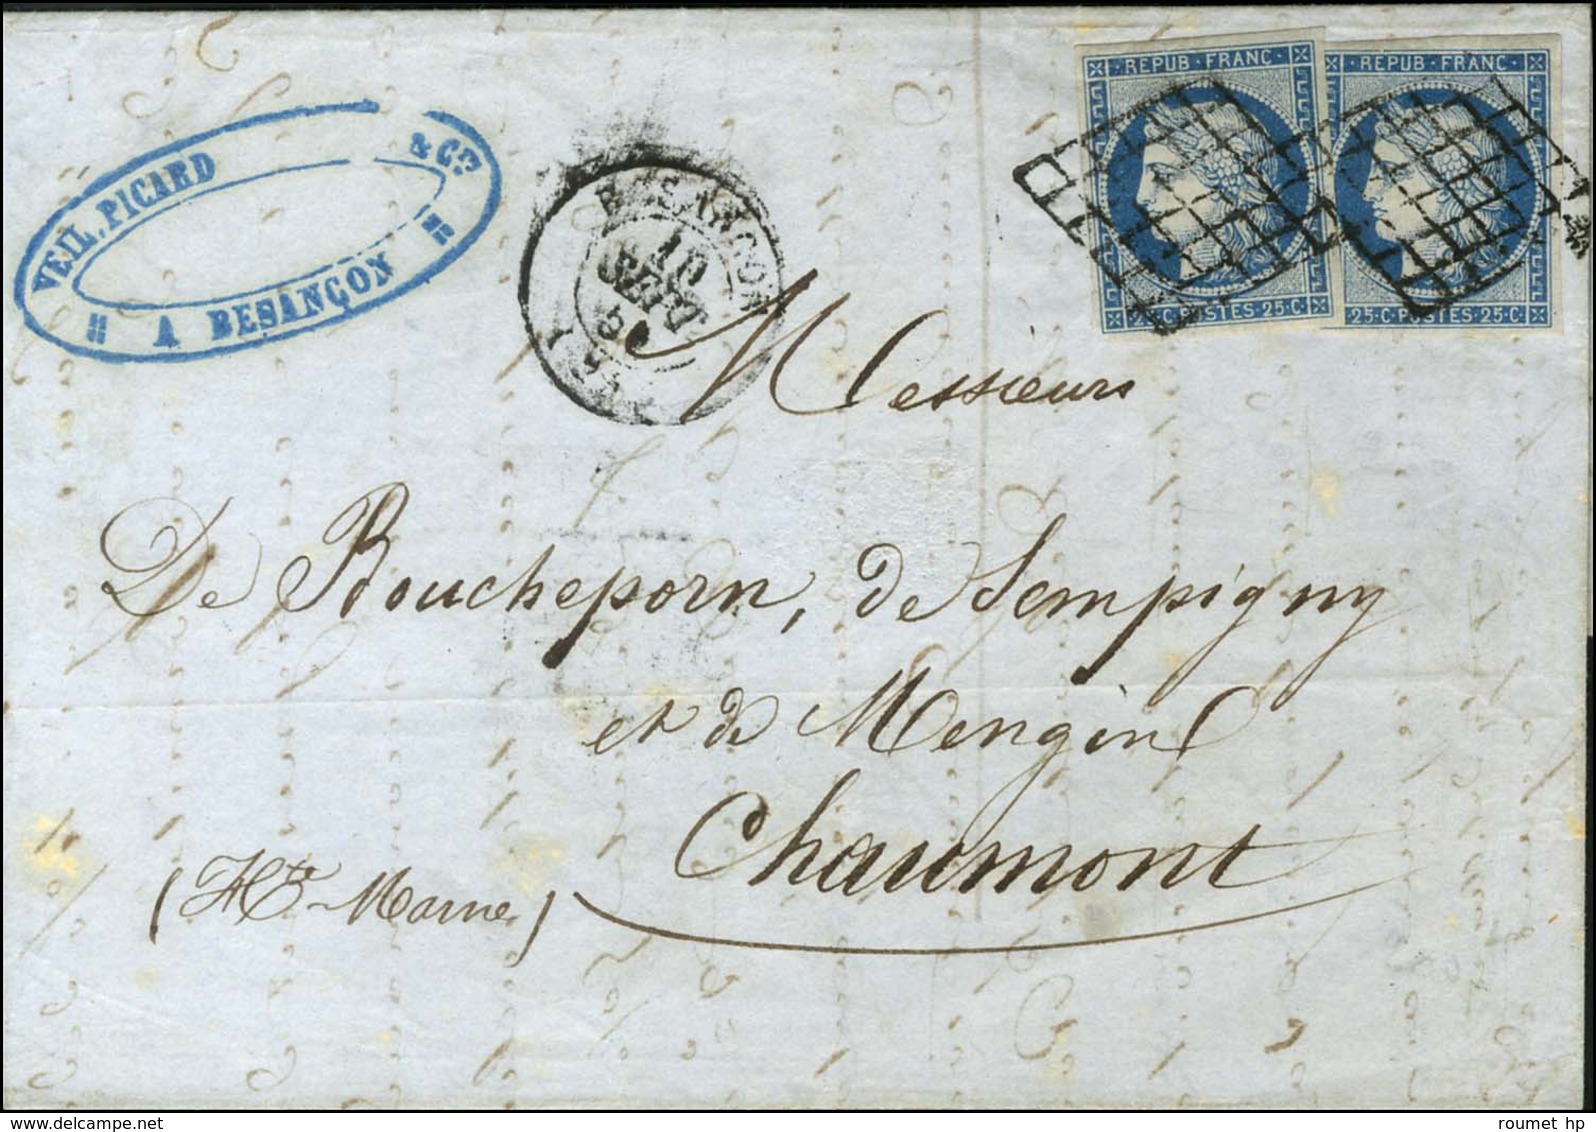 VEIL, PICARD & Cie
A BESANÇON
BESANÇON
10
SEPT
50
REPUB · FRANC ·
25 · C · POSTES · 25 · C ·
REPUB · FRANC ·
25 · C · POSTES · 25 · C ·
Messieurs
De Boucheporn, de Sempigny
et de Mengin
Chaumont
(Hte Marne)
roumet hp